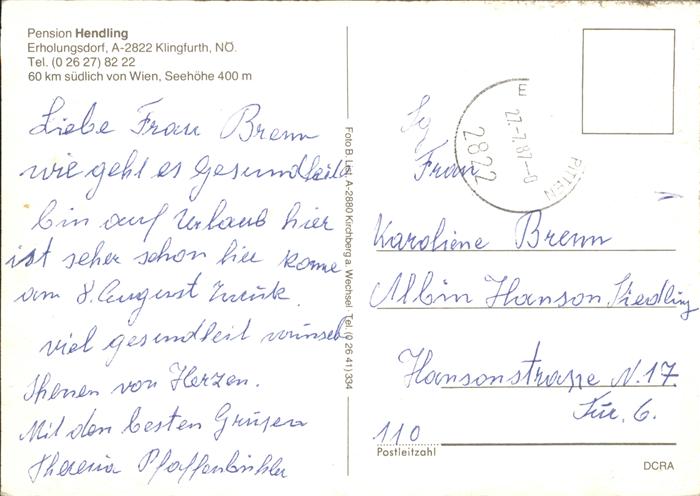 Pension Hendling
Erholungsdorf, A-2822 Klingfurth, NÖ.
Tel. (0 26 27) 82 22
60 km südlich von Wien, Seehöhe 400 m
Liebe Frau Brenn
wie geht es Gesundheitl
bin auf Urlaub hier
ist seher schon hier komme
am 8. August zurück.
viel gesundheit wünsch
Ihenen von Herzen.
Mit den besten Grüßen
Theresia Pfaffenbichler
Foto B. List, A-2880 Kirchberg a. Wechsel Tel. (0 26 41) 334
E
27.-7.87-0
PITTEN
2822
Frau
Karoliene Brenn
Albin Hanson Siedling
Hansonstrasse N. 17
Tür. 6.
110
Postleitzahl
DCRA